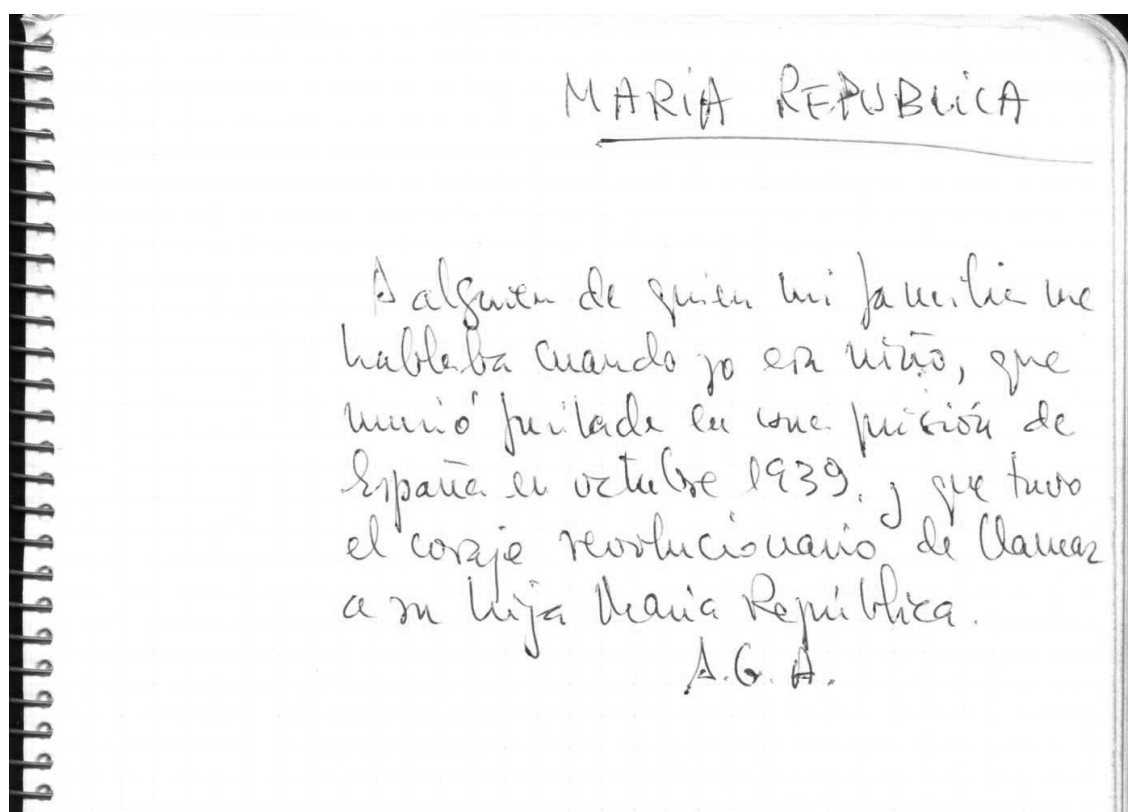 MARIA REPUBLICA
A alguien de quien mi familia me
hablaba cuando yo era niño, que
murió fusilada en una prisión de
España en octubre 1939, y que tuvo
el coraje revolucionario de llamar
a su hija María República.
A.G.A.